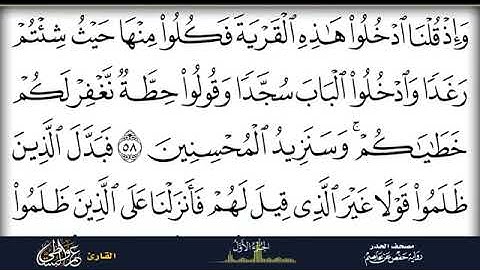 وَإِذْ قُلْنَا ٱدْخُلُوا۟ هَـٰذِهِ ٱلْقَرْيَةَ فَكُلُوا۟ مِنْهَا حَيْثُ شِئْتُمْ
رَغَدًا وَٱدْخُلُوا۟ ٱلْبَابَ سُجَّدًا وَقُولُوا۟ حِطَّةٌ نَّغْفِرْ لَكُمْ
خَطَـٰيَـٰكُمْ ۚ وَسَنَزِيدُ ٱلْمُحْسِنِينَ ٥٨ فَبَدَّلَ ٱلَّذِينَ
ظَلَمُوا۟ قَوْلًا غَيْرَ ٱلَّذِى قِيلَ لَهُمْ فَأَنزَلْنَا عَلَى ٱلَّذِينَ ظَلَمُوا۟
مصحف الحدر
رواية حفص عن عاصم
الجزء الأول
القارئ